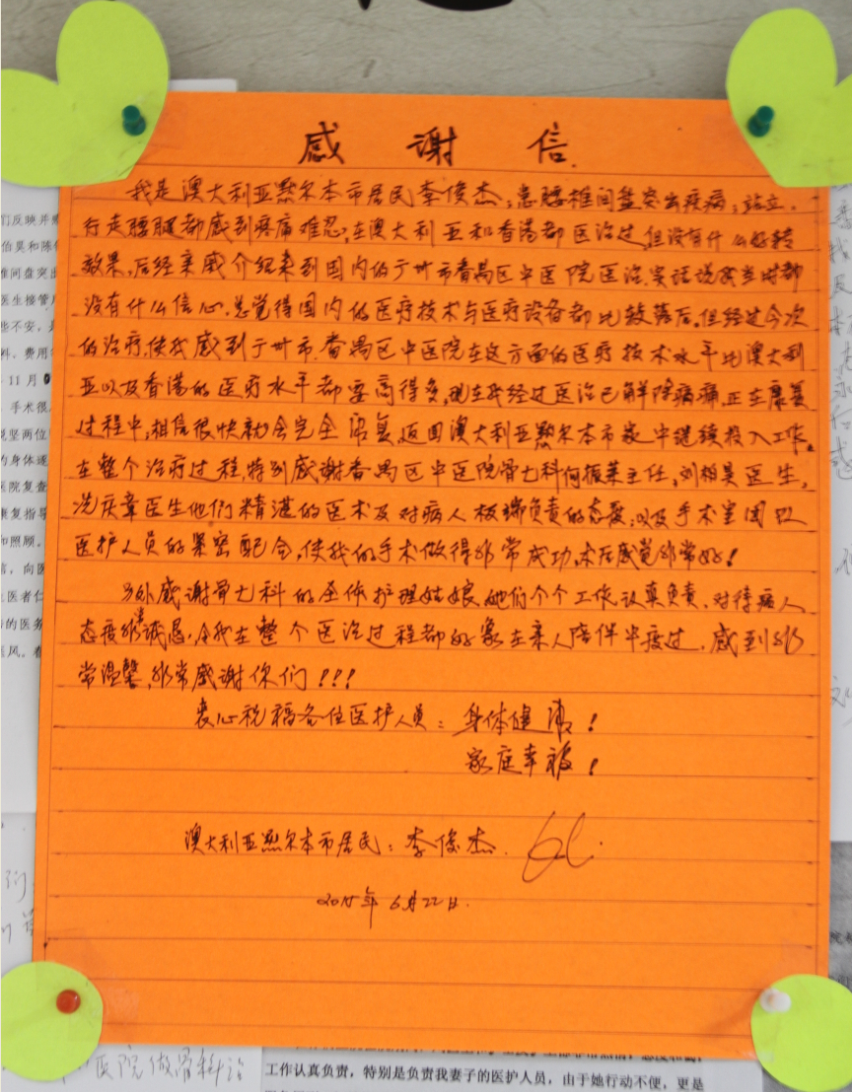 感谢信
我是澳大利亚默尔本市居民李俊杰,患腰椎间盘突出疾病,站立、
行走腰腿都感到疼痛难忍,在澳大利亚和香港都医治过,但没有什么好转
效果,后经亲戚介绍来到国内的广州市番禺区中医院医治,实话说我当时都
没有什么信心,总觉得国内的医疗技术与医疗设备都比较落后。但经过今次
的治疗,使我感到广州市番禺区中医院在这方面的医疗技术水平比澳大利
亚以及香港的医疗水平都要高得多,现在我经过医治已解除病痛,正在康复
过程中,相信很快就会完全康复,返回澳大利亚默尔本市家中继续投入工作。
在整个治疗过程,特别感谢番禺区中医院骨七科何振业主任,刘相昊医生,
冼庆章医生他们精湛的医术及对病人极端负责的态度,以及手术室团队
医护人员的紧密配合,使我的手术做得非常成功,术后感觉非常好!
另外感谢骨七科的全体护理姑娘,她们个个工作认真负责,对待病人
态度非常诚恳,令我在整个医治过程都好象在亲人陪伴中度过,感到非
常温馨,非常感谢你们!!!
衷心祝福各位医护人员:身体健康!
家庭幸福!
澳大利亚默尔本市居民:李俊杰.
2015年6月22日.
们反映并
伯昊和陈
椎间盘突
医生接管
些不安,
料。费用
11月
手术很
说坚两位
的身体逐
医院复查
康复指导
和照顾。
言,向
医者仁
的医务
风。
医院做骨科治
工作认真负责,特别是负责我妻子的医护人员,由于她行动不便,更是